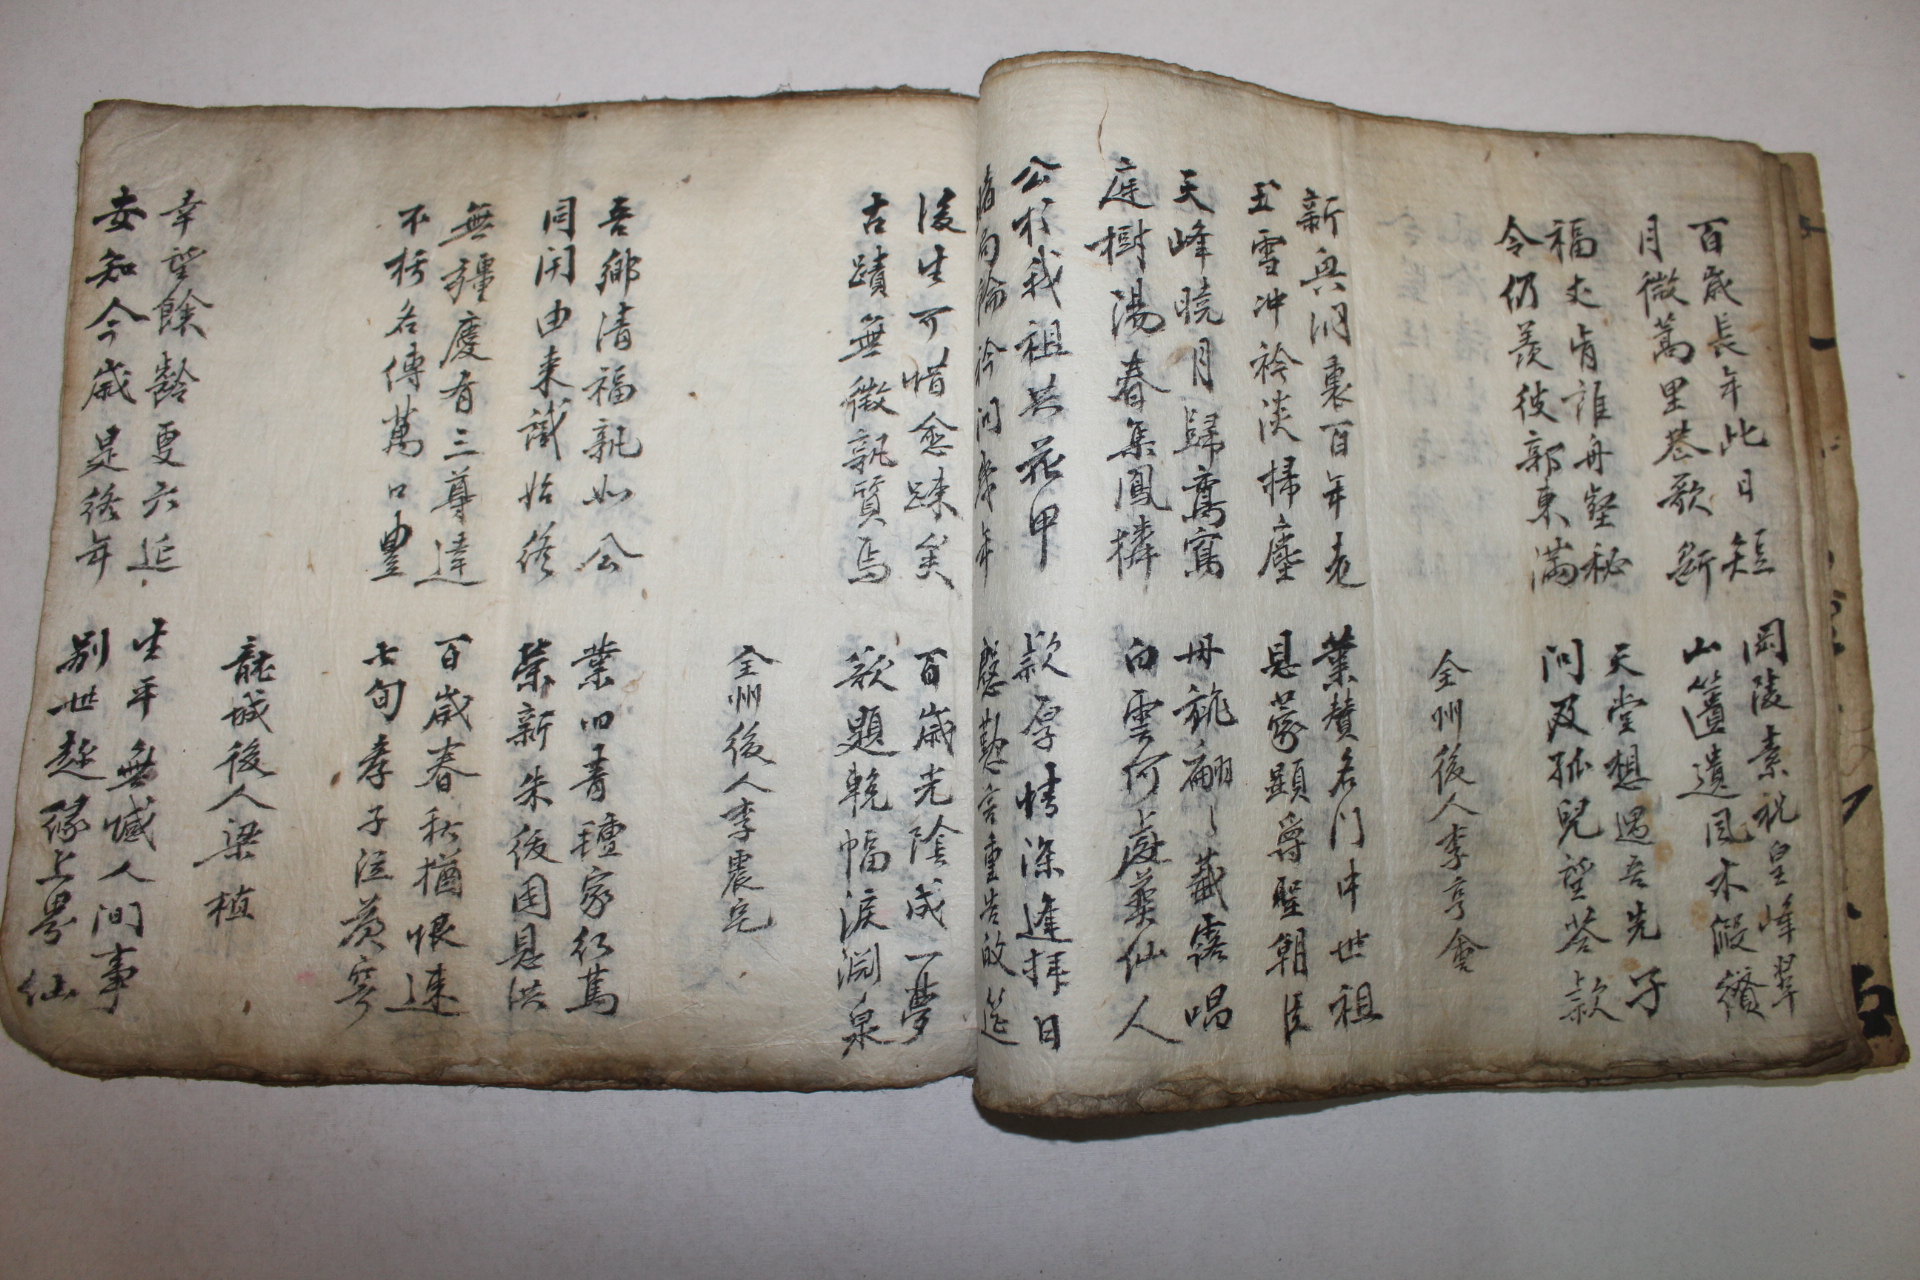 百歲長年此日短 岡陵素祝皇峰翠
月微萬里薤歌斷 山簣遺風木假
福丈肯誰舟壑秘 天堂想遇吾先子
令仍羨彼郭東滿 問及孤兒望荅款
全州後人李亨會
新興洞裏百年老 業贊名門中世祖
玉雪冲衿淡掃塵 恩蒙顯爵聖朝臣
天峰曉月歸鸞寫 丹旐翩〻薤露唱
庭樹湯春集鳳憐 白雲何處葬仙人
公於我祖共花甲 款厚情深逢拜日
論衿問幾年 慇懃言重告
後生可惜愈疎矣 百歲光陰成一夢
古蹟無徵孰質焉 歎題輓幅淚淵泉
全州後人李震宅
吾鄉清福孰如公 業四青氈家行篤
同閈由來識始終 榮新朱紱國恩洪
無疆慶有三尊達 百歲春秋猶恨速
不朽名傳萬口豐 七旬孝子泣蒼穹
龍城後人梁植
幸望餘齡更六延 生平無憾人間事
安知今歲是終年 別世超緣上界仙